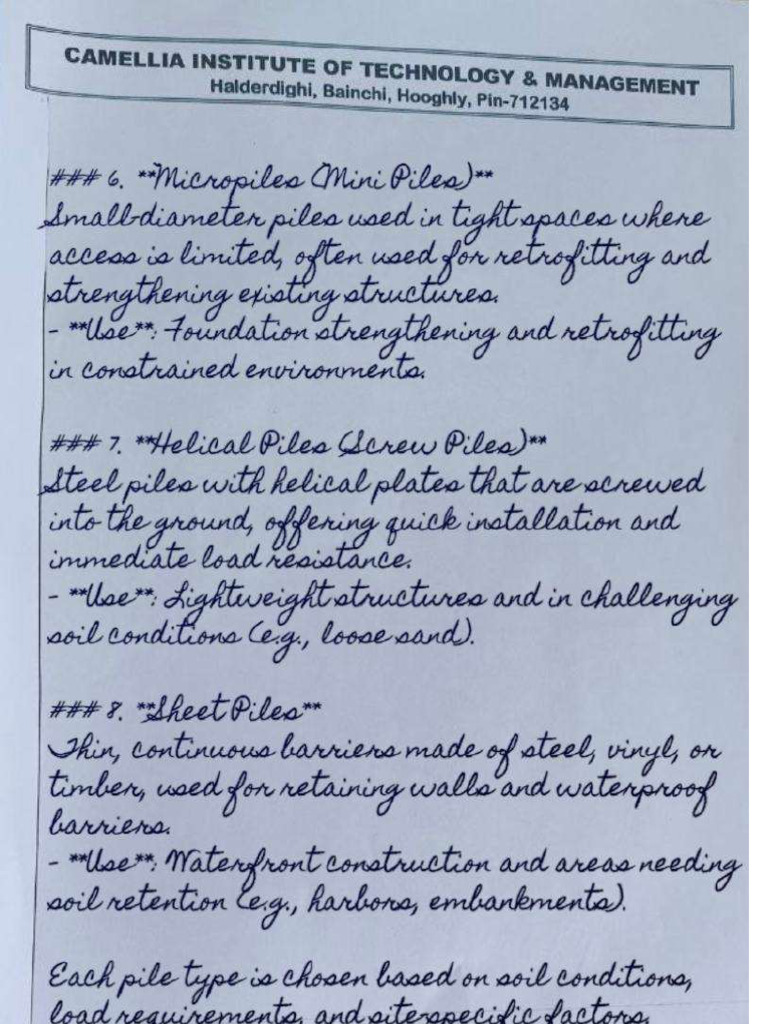 CAMELLIA INSTITUTE OF TECHNOLOGY & MANAGEMENT
Halderdighi, Bainchi, Hooghly, Pin-712134
### 6. **Micropiles (Mini Piles)**
Small-diameter piles used in tight spaces where
access is limited, often used for retrofitting and
strengthening existing structures.
- **Use**: Foundation strengthening and retrofitting
in constrained environments.
### 7. **Helical Piles (Screw Piles)**
Steel piles with helical plates that are screwed
into the ground, offering quick installation and
immediate load resistance.
- **Use**: Lightweight structures and in challenging
soil conditions (e.g., loose sand).
### 8. **Sheet Piles**
Thin, continuous barriers made of steel, vinyl, or
timber, used for retaining walls and waterproof
barriers.
- **Use**: Waterfront construction and areas needing
soil retention (e.g., harbors, embankments).
Each pile type is chosen based on soil conditions,
load requirements, and site-specific factors.